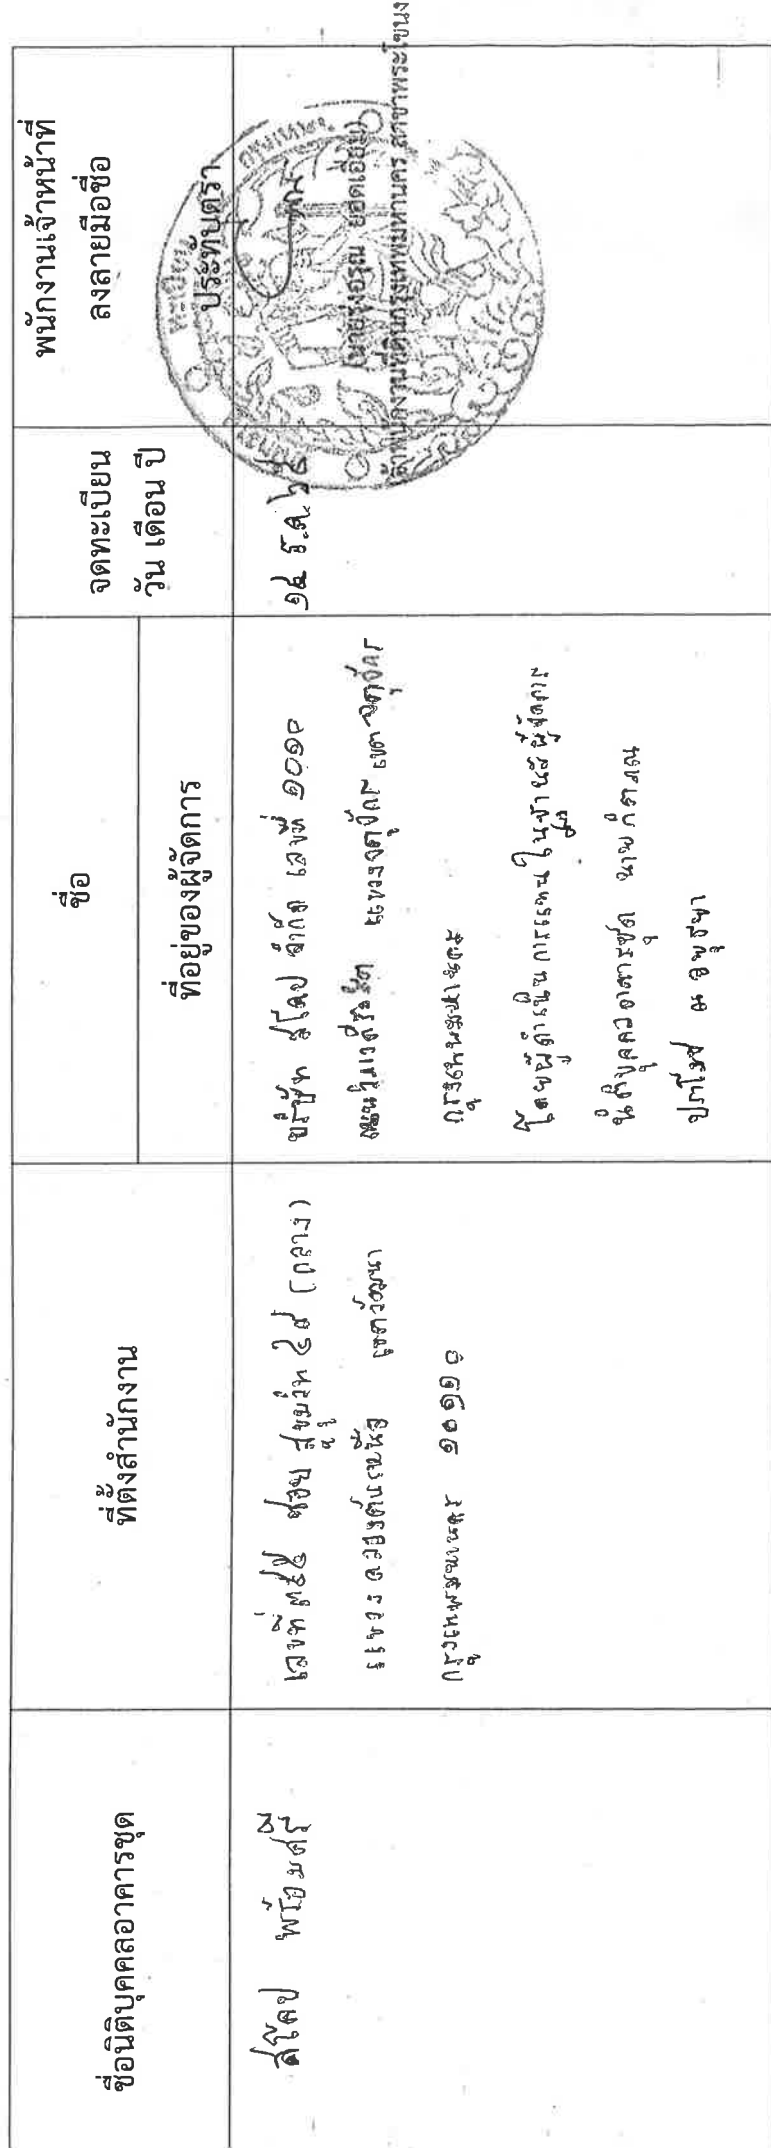 ชื่อนิติบุคคลอาคารชุด
ที่ตั้งสำนักงาน
ชื่อ
ที่อยู่ของผู้จัดการ
จดทะเบียน
วัน เดือน ปี
พนักงานเจ้าหน้าที่
ลงลายมือชื่อ
ประทับตรา
สโคป พร้อมศรี
เลขที่ ๓๕๕ ซอย สุขุมวิท ๔๙ (กลาง)
แขวงคลองตันเหนือ เขตวัฒนา
กรุงเทพมหานคร ๑๐๑๑๐
บริษัท สโคป จำกัด เลขที่ ๑๐๑๐
ถนนวิภาวดีรังสิต แขวงจตุจักร เขตจตุจักร
กรุงเทพมหานคร
โดยผู้ดำเนินการแทนในฐานะผู้จัดการ
นิติบุคคลอาคารชุด นาย
ปราโมช ณ อยุธยา
๑๔ ธ.ค. ๖๔
(นายรุ่งอรุณ ยอดเอี่ยม)
เจ้าพนักงานที่ดินกรุงเทพมหานคร สาขาพระโขนง